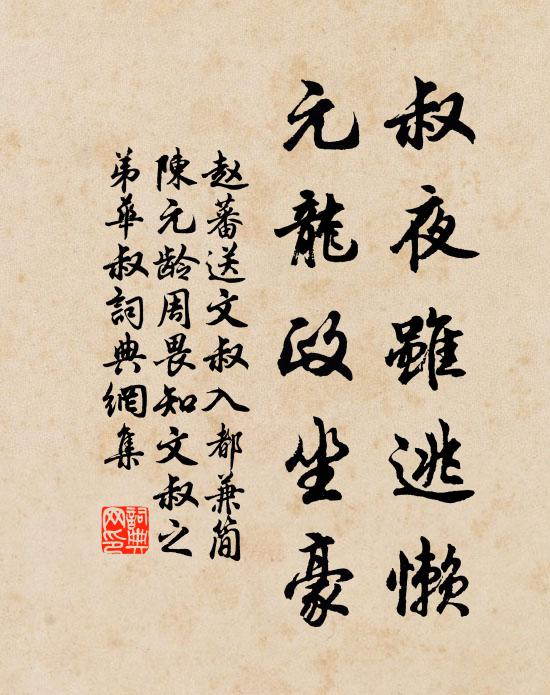 叔夜雖逃懒
元龍政坐豪
赵蕃送文叔入都兼简
陳元龄周畏知文叔之
弟華叔詞典網集
詞典
网印